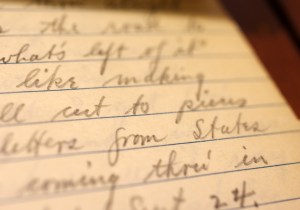 the road to
what's left of it"
like making
ll cut to pieces
letters from States
coming thru in
Sept 24.